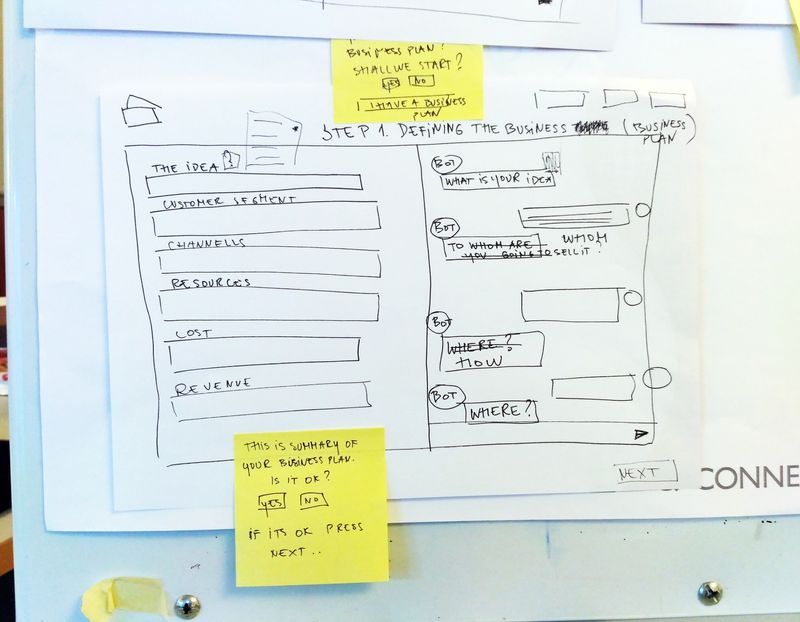 BUSINESS PLAN?
SHALL WE START?
YES NO
I HAVE A BUSINESS
PLAN
STEP 1. DEFINING THE BUSINESS (BUSINESS
PLAN)
THE IDEA ?
CUSTOMER SEGMENT
CHANNELLS
RESOURCES
COST
REVENUE
BOT
WHAT IS YOUR IDEA
BOT
TO WHOM ARE WHOM
YOU GOING TO SELL IT?
BOT
WHERE?
HOW
BOT
WHERE?
NEXT
CONNE
THIS IS SUMMARY OF
YOUR BUSINESS PLAN.
IS IT OK?
YES NO
IF ITS OK PRESS
NEXT..